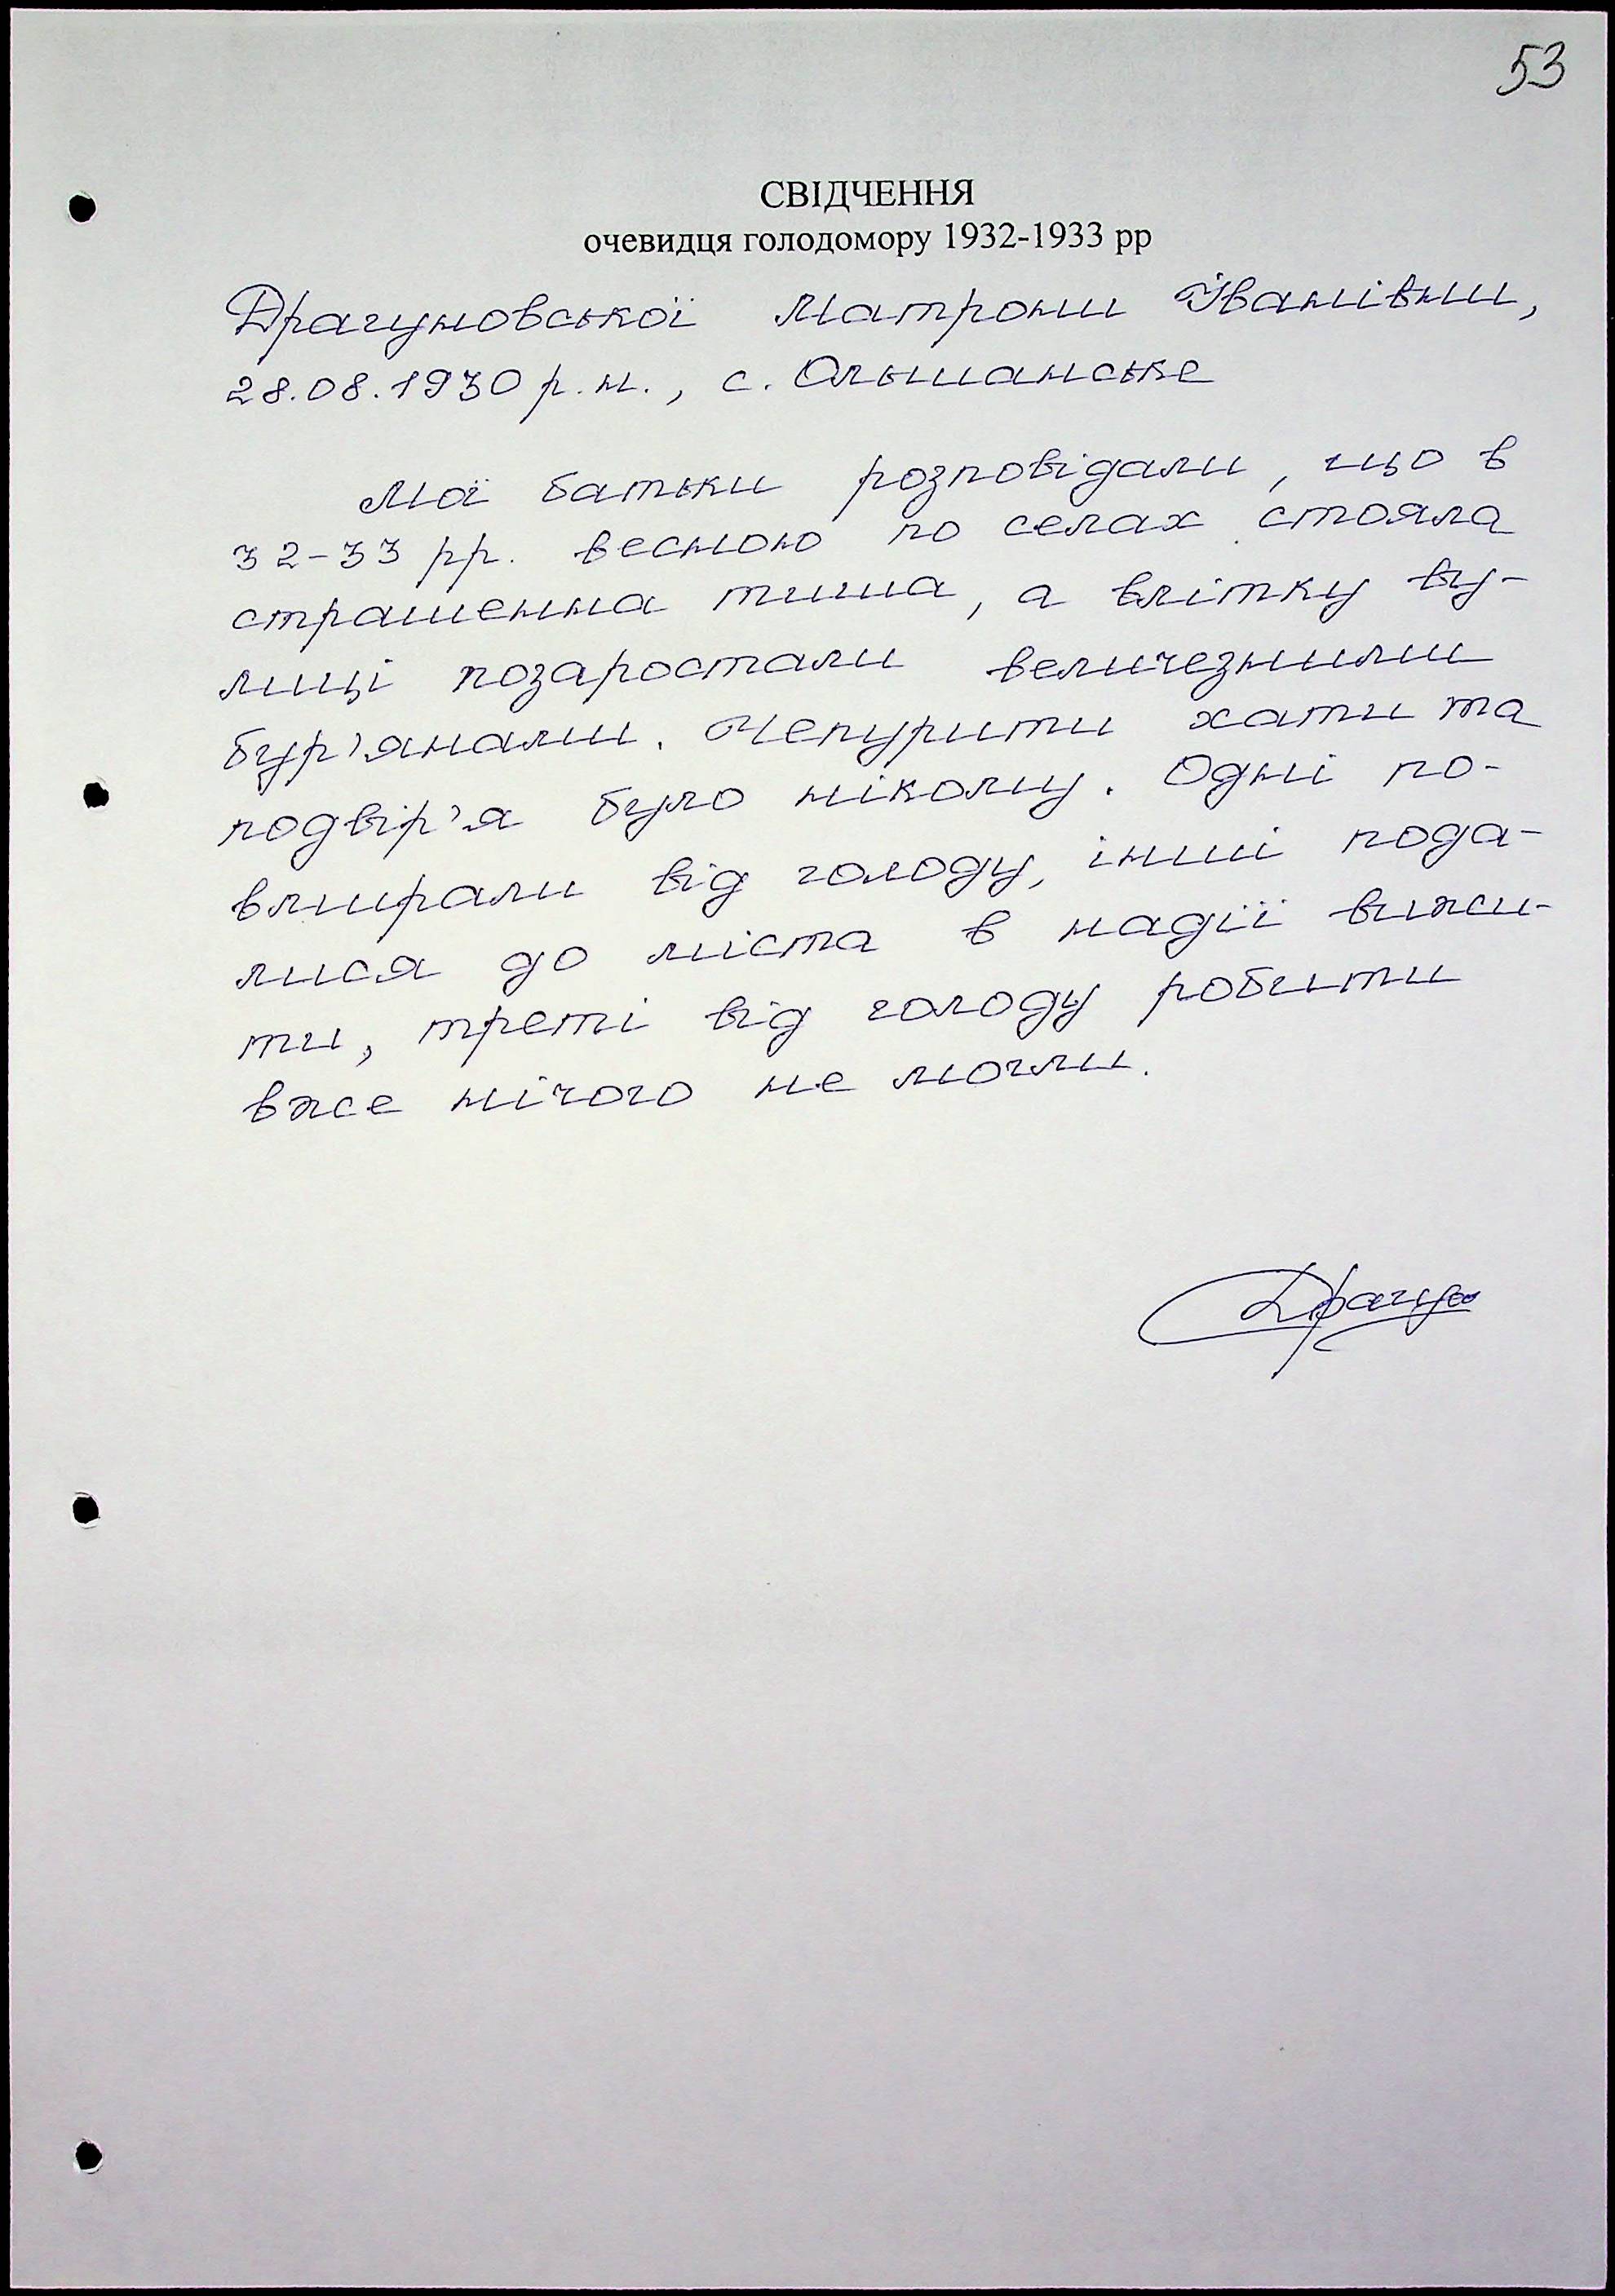 53
СВІДЧЕННЯ
очевидця голодомору 1932-1933 рр
Драгуновської Матрони Іванівни,
28.08.1930 р.н., с. Ольшанське
Мої батьки розповідали, що в
32-33 рр. весною по селах стояла
страшенна тиша, а влітку ву-
лиці позаростали величезними
бур'янами. Чепурити хати та
подвір'я було ніколи. Одні по-
вмирали від голоду, інші пода-
лися до міста в надії вижи-
ти, треті від голоду робити
вже нічого не могли.
Драгун